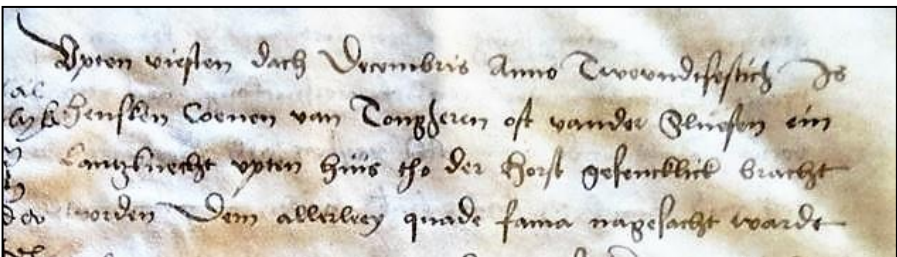 Upten viersten dach Decembris Anno Twevndtsestich Is
Hensken Coenen van Tongheren oft vander Slusen ein
Lantzknecht upten huis tho der Horst gefencklick bracht
worden Dem allerleey quade fama nagesacht warde